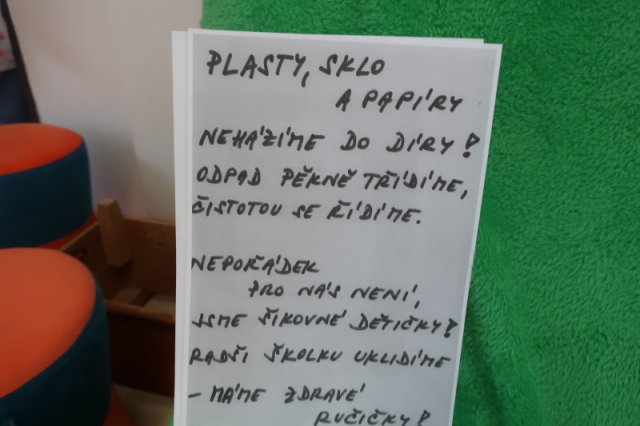 PLASTY, SKLO
A PAPÍRY
NEHÁZÍME DO DÍRY!
ODPAD PĚKNĚ TŘÍDÍME,
ČISTOTOU SE ŘÍDÍME.
NEPOŘÁDEK
PRO NÁS NENÍ,
JSME ŠIKOVNÉ DĚTIČKY!
RADŠI ŠKOLKU UKLIDÍME
- MÁME ZDRAVÉ
RUČIČKY!